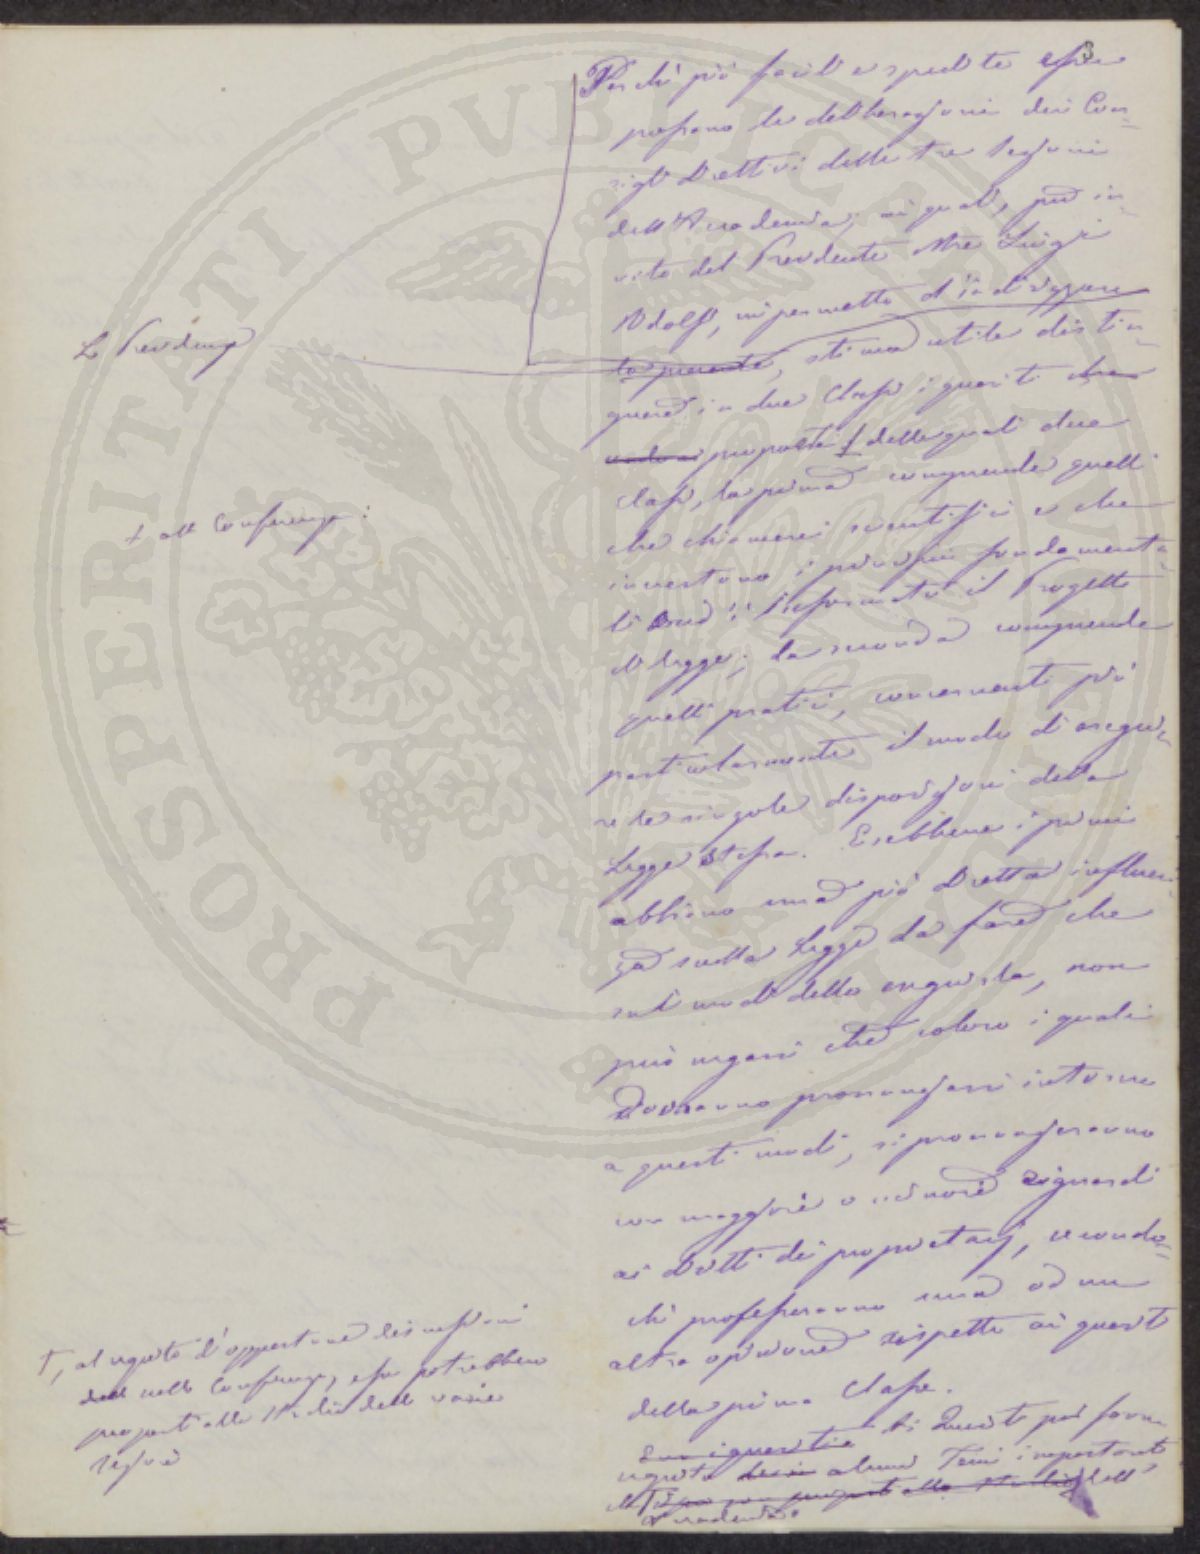 3
Perchè più facili e spedite esser
possano le deliberazioni dei Con=
sigli Direttivi delle tre Sezioni
dell'Accademia, ai quali, per in=
vito del Presidente Mre Luigi
mi permetto d'indirizzare
La Presidenza
la presente, stima utile distin=
guere in due Classi i quesiti che
proposti † delle quali due
Classi, la prima comprende quelli
+ alle Conferenze:
che chiamerei scientifici e che
investono i principii fondamenta=
li è informato il Progetto
di legge; la seconda comprende
quelli pratici, concernenti più
particolarmente il modo di esegui=
re le singole disposizioni della
Legge stessa. E sebbene i primi
abbiano una più diretta influen=
za sulla Legge da fare che
sui modi dello eseguirla, non
può negarsi che coloro i quali
dovranno pronunziarsi intorno
a questi modi, si pronunzieranno
con maggiore o minore riguardi
ai diritti dei proprietarj, secondo=
chè professeranno una od un
altra opinione rispetto ai quesiti
della prima Classe.
I quesiti
seguito alcuni Temi importanti
proposti allo studio dell'
Accademia.
†, al seguito l'opportune discussioni
nelle Conferenze, esser potrebbero
proposti allo studio delle varie
Sezioni
PROSPERITATI PVBLICAE